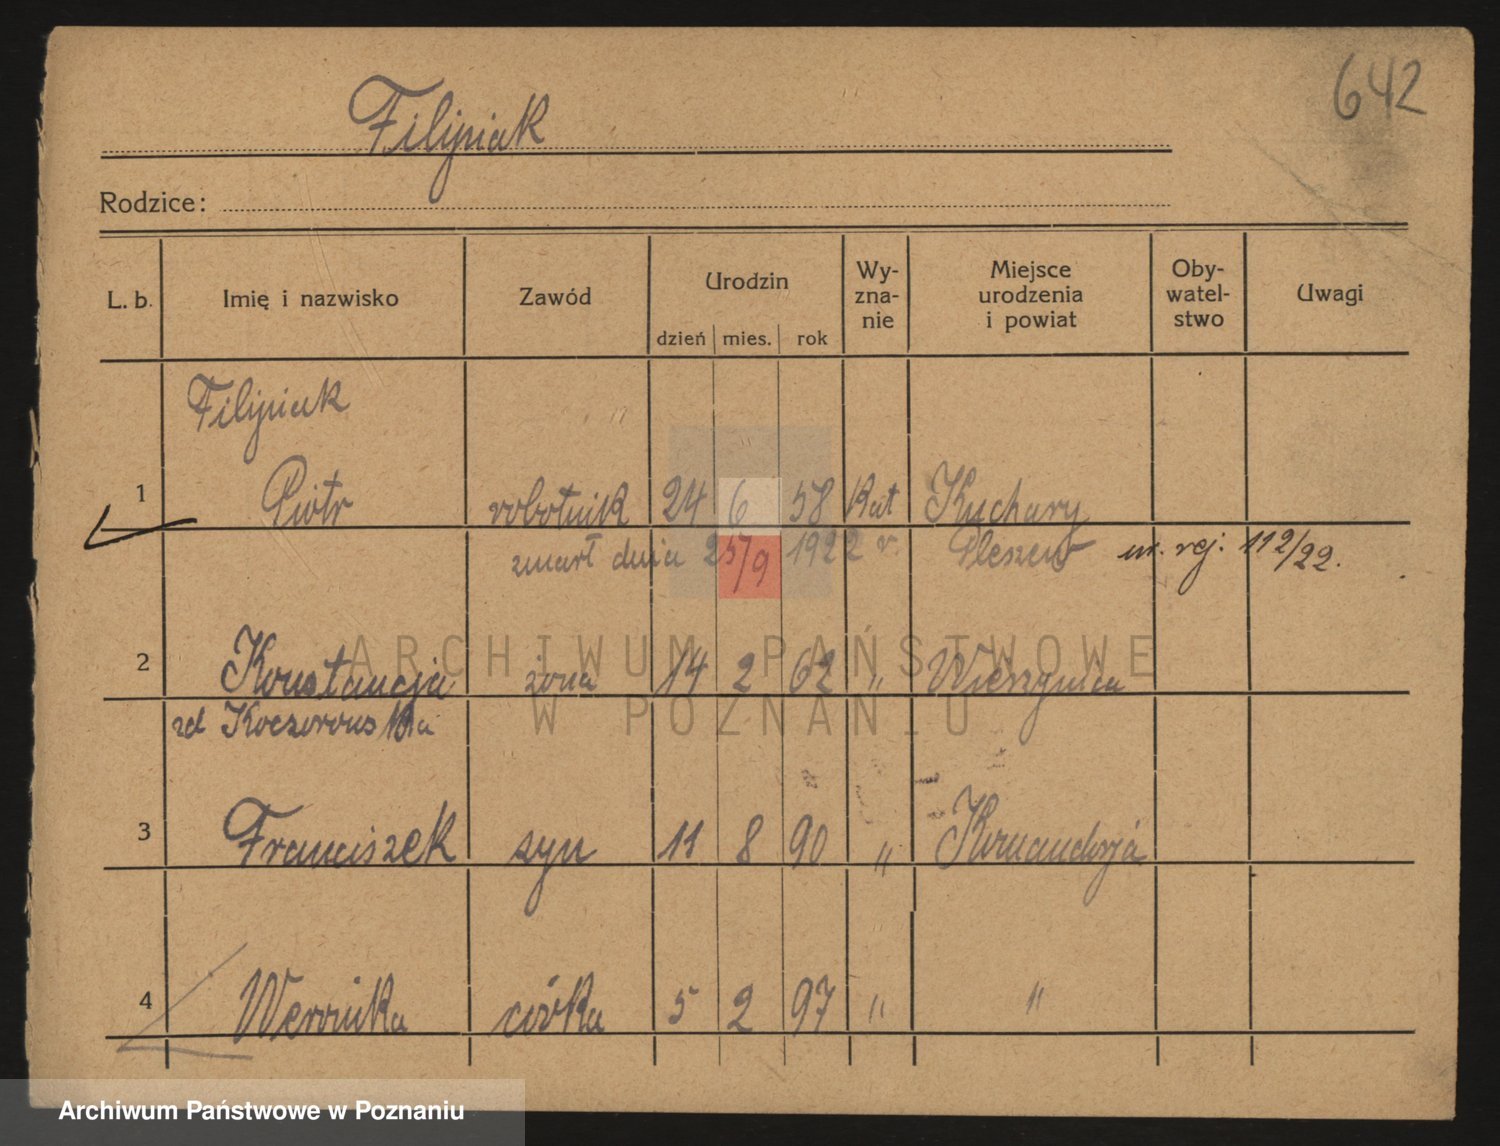 642
Filipiak
Rodzice:
L. b. Imię i nazwisko Zawód Urodzin dzień mies. rok Wy-zna-nie Miejsce urodzenia i powiat Oby-watel-stwo Uwagi
Filipiak
1 Piotr robotnik 24 6 58 Kat Kuchary
zmarł dnia 25/9 1922 r. Pleszew nr. rej. 112/22.
2 Konstancja żona 14 2 62 "
zd
3 Franciszek syn 11 8 90 "
4 Weronika córka 5 2 97 " "
ARCHIWUM PAŃSTWOWE
W POZNANIU
Archiwum Państwowe w Poznaniu